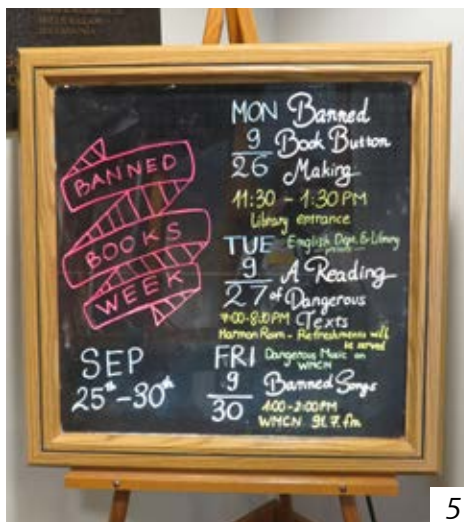 BANNED
BOOKS
WEEK
SEP
25th-30th
MON 9/26
Banned
Book Button
Making
11:30 - 1:30 PM
Library entrance
TUE 9/27
English Dept. & Library
A Reading
of Dangerous
Texts
7:00-8:30 PM
Harmon Room - Refreshments will
be served
FRI 9/30
Dangerous Music on
WMCN
Banned Songs
1:00-2:00 PM
WMCN 91.7 fm
5